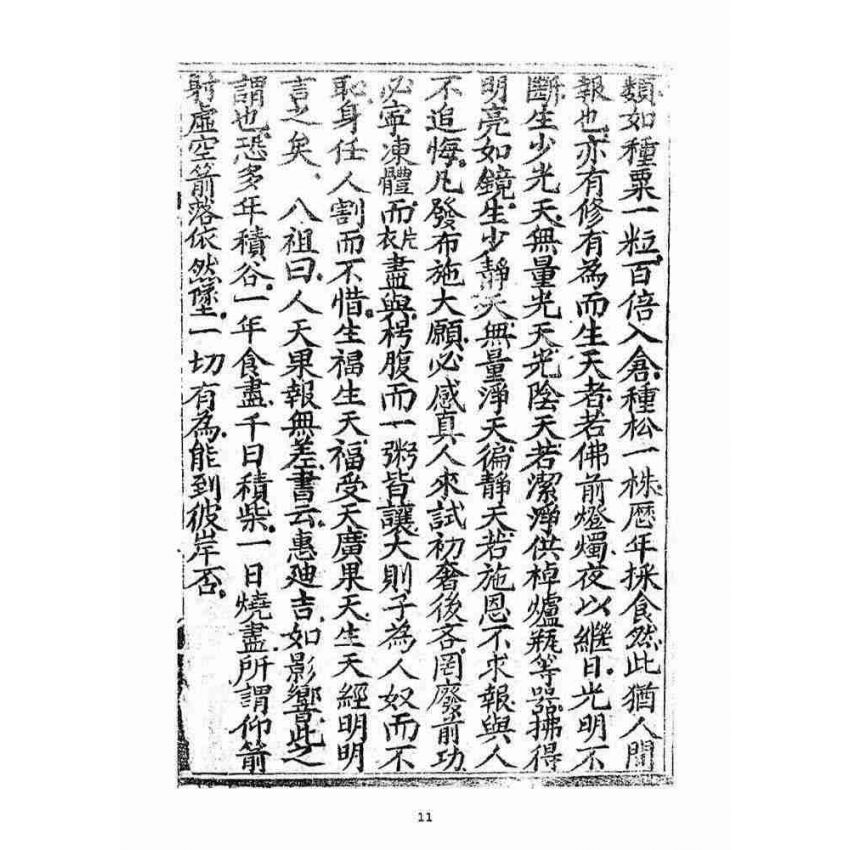 類如種粟一粒百倍入倉種松一株歷年採食然此猶人間
報也亦有修有為而生天者若佛前燈燭夜以繼日光明不
斷生少光天無量光天光陰天若潔淨供棹爐瓶等器拂得
明亮如鏡生少靜天無量淨天徧靜天若施恩不求報與人
不追悔凡發布施大願必感真人來試初奢後吝罔廢前功
必寧凍體而衣片盡與枵腹而一粥皆讓大則子為人奴而不
恥身任人割而不惜生福生天福受天廣果天生天經明明
言之矣、八祖曰人天果報無差書云惠迪吉如影響此之
謂也恐多年積谷一年食盡千日積柴一日燒盡所謂仰箭
射虛空箭落依然墜一切有為能到彼岸否。
11